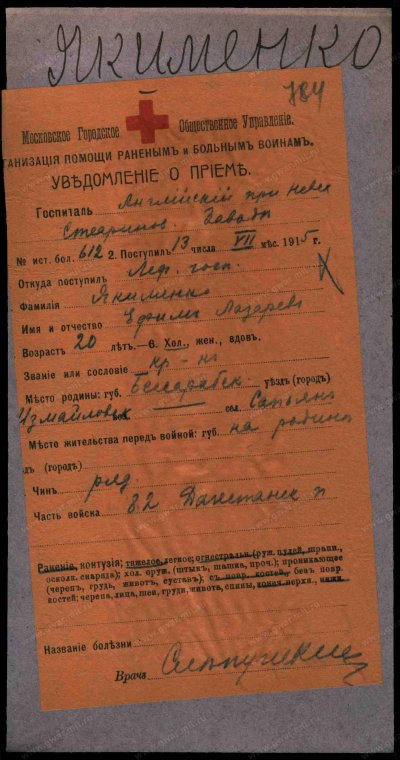 ЯКИМЕНКО
784
Московское Городское Общественное Управленіе.
ганизація помощи раненымъ и больнымъ воинамъ.
Увѣдомленіе о пріемѣ.
Госпиталь Англійскій при Невск
Стеаринов. Заводѣ
№ ист. бол. 612 2. Поступилъ 13 числа VII мѣс. 1915 г.
Откуда поступилъ Леф. госп.
Фамилія Якименко
Имя и отчество Ефимъ Лазарев
Возрастъ 20 лѣтъ.—6. Хол., жен., вдов.
Званіе или сословіе кр-нъ
Место родины: губ. Бессарабск. уѣздъ (городъ)
Измайловск вол. сел. Сатьяно
Мѣсто жительства передъ войной: губ. на родинѣ
дъ (городъ)
Чинъ ряд.
Часть войска 82 Дагестанск п
Раненіе, контузія; тяжелое, легкое; огнестрѣльн. (руж. пулей, шрапн.,
осколк. снаряда); хол. оруж. (штыкъ, шашка, проч.); проникающее
(черепъ, грудь, животъ, суставъ); съ повр. костей, безъ повр.
костей: черепа, лица, шеи, груди, живота, спины, конеч. верхн., нижн.
Названіе болѣзни
Врачъ